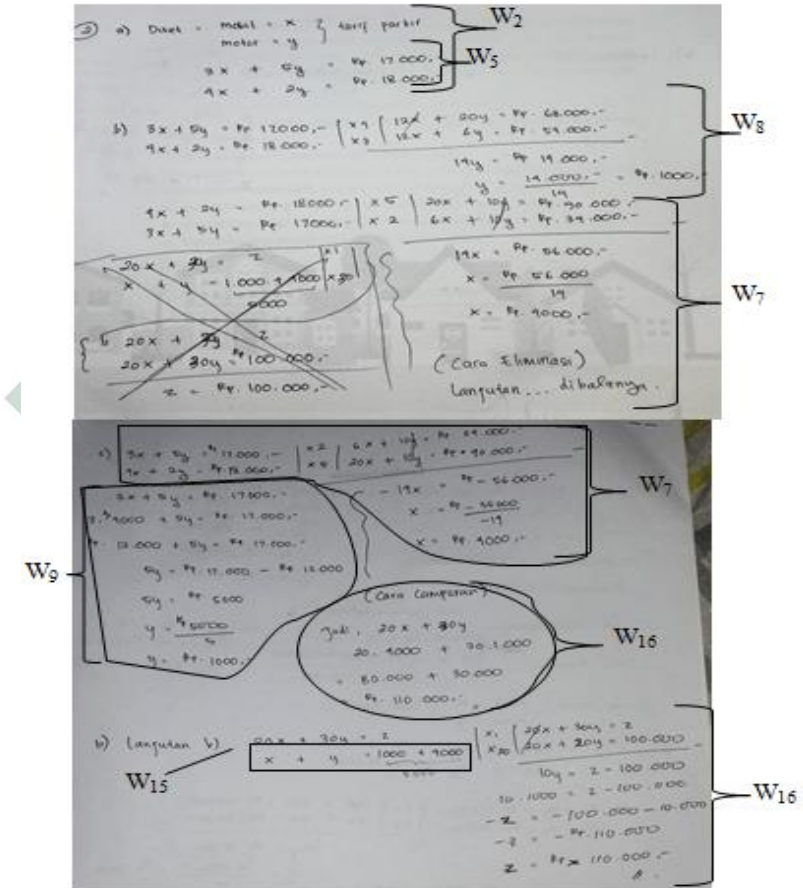 2) a) Diket = mobil = x } tarif parkir
motor = y
3x + 5y = Rp. 17000,-
4x + 2y = Rp. 18.000,-
W2
W5
b) 3x + 5y = Rp 17000,- | x4 | 12x + 20y = Rp. 68.000,-
4x + 2y = Rp. 18.000,- | x3 | 12x + 6y = Rp. 54.000,-
14y = Rp 14.000,-
y = 14.000,- / 14 = Rp. 1000,-
W8
4x + 2y = Rp. 18000,- | x5 | 20x + 10y = Rp. 90.000,-
3x + 5y = Rp. 17000,- | x2 | 6x + 10y = Rp. 34.000,-
14x = Rp. 56.000,-
x = Rp. 56.000 / 14
x = Rp. 4000,-
W7
20x + 30y = z | x1
x + y = 1.000 + 4000 | x20
5000
20x + 30y = z
20x + 20y = Rp 100.000,-
z = Rp. 100.000,-
(Cara Eliminasi)
Lanjutan ... dibaliknya.
c) 3x + 5y = Rp 17.000,- | x2 | 6x + 10y = Rp 34.000,-
4x + 2y = Rp. 18.000,- | x5 | 20x + 10y = Rp. 90.000,-
- 14x = Rp - 56000,-
x = Rp - 56000 / -14
x = Rp. 4000,-
W7
3x + 5y = Rp. 17000,-
3. Rp 4000 + 5y = Rp. 17.000,-
Rp. 12.000 + 5y = Rp 17.000,-
5y = Rp. 17.000 - Rp 12.000
5y = Rp 5000
y = Rp 5000 / 5
y = Rp. 1000,-
W9
(Cara Campuran)
Jadi, 20x + 30y
20.4000 + 30.1.000
= 80.000 + 30.000
Rp. 110.000,-
W16
b) Lanjutan b) 20x + 30y = z | x1 | 20x + 30y = z
x + y = 1000 + 4000 | x20 | 20x + 20y = 100.000
5000
W15
10y = z - 100.000
10.1000 = z - 100.000
-z = -100.000 - 10.000
-z = -Rp. 110.000
z = Rp 110.000,-
W16